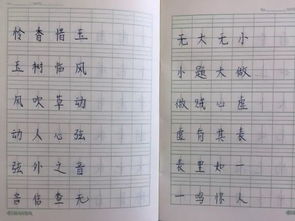 怜香惜玉
玉树临风
风吹草动
动人心弦
弦外之音
音信杳无
无大无小
小题大做
做贼心虚
虚有其表
表里如一
一当作人